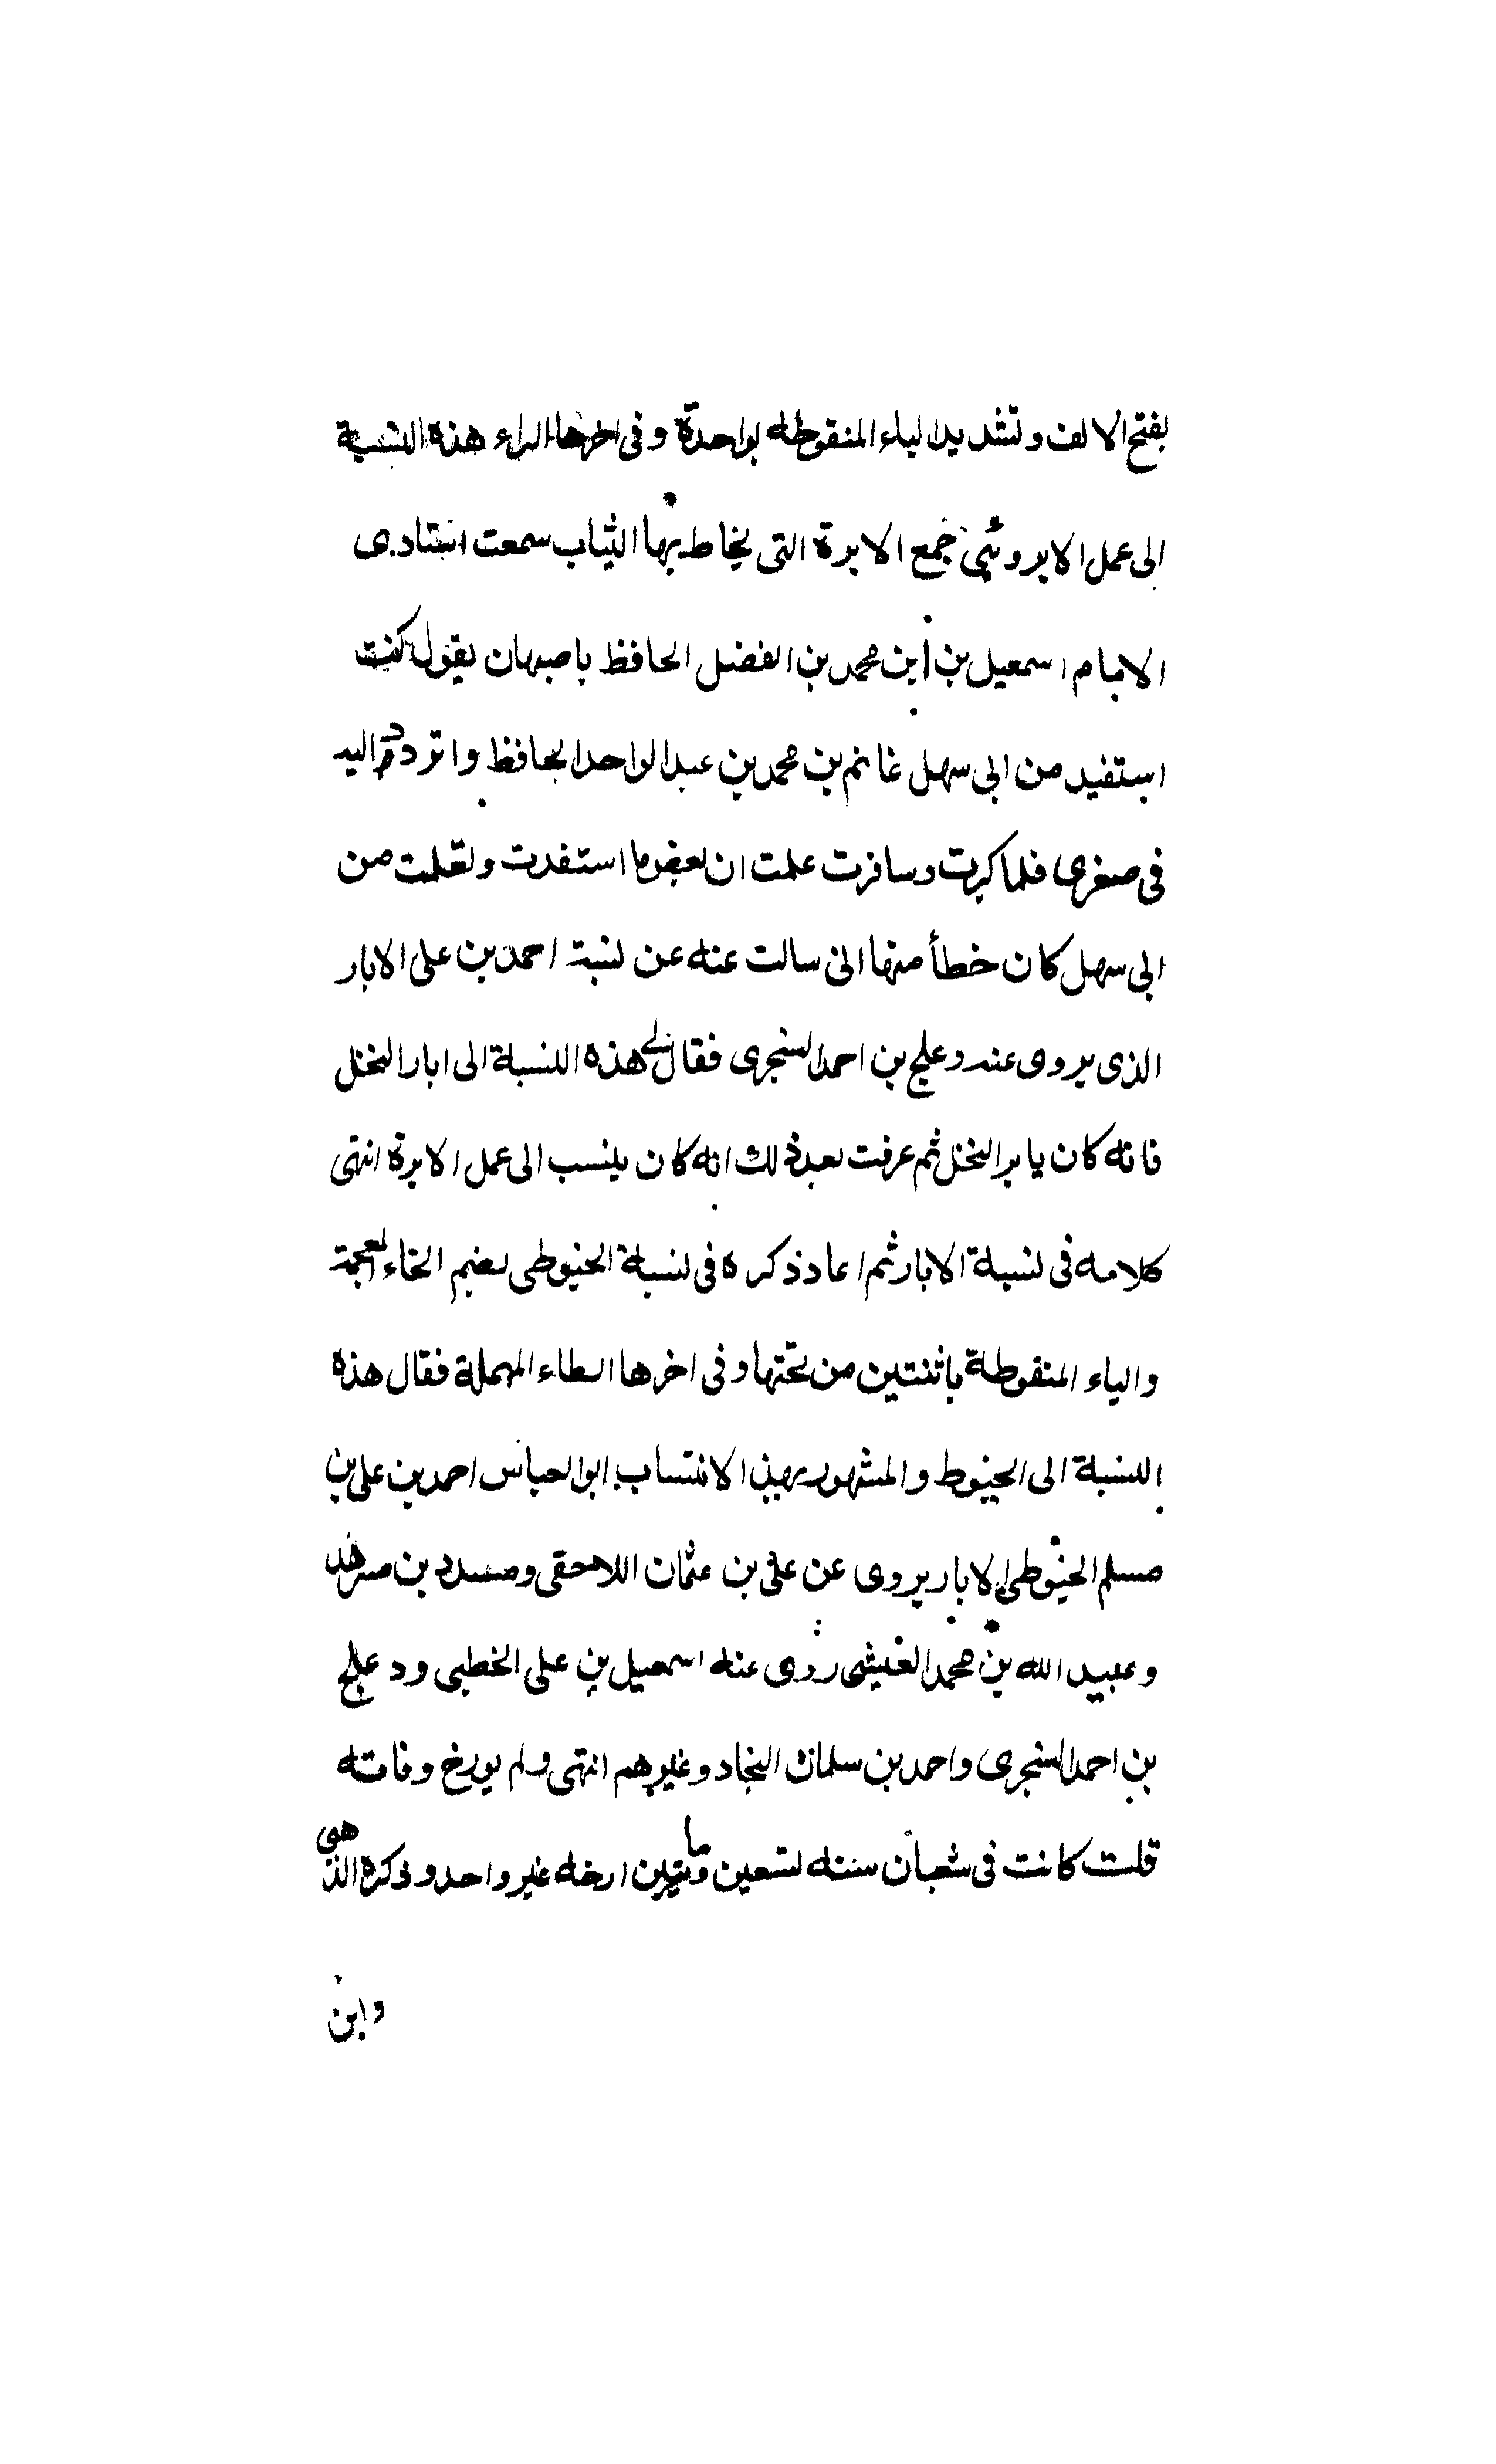 بفتح الالف وتشديد الياء المنقوطه بواحدة وفى اخرها الراء هذه النسبة
الى عمل الابر وهى جمع الابرة التى يخاط بها الثياب سمعت استادى
الامام اسمعيل بن ابن محمد بن الفضل الحافظ باصبهان يقول كنت
استفيد من ابى سهل غانم بن محمد بن عبد الواحد الحافظ واتردد اليه
فى صغرى فلما كبرت وسافرت علمت ان بعض ما استفدت وتعلمت من
ابى سهل كان خطأ منها انى سالت عنه عن نسبة احمد بن على الابار
الذى يروى عنه دعلج بن احمد السنجرى فقال لى هذه النسبة الى ابار النخل
فانه كان يابر النخل ثم عرفت بعد ذلك انه كان ينسب الى عمل الابرة انتهى
كلامه فى نسبة الابار ثم اعاد ذكره فى نسبة الخيوطى بضم الخاء المعجمة
والياء المنقوطة باثنتين من تحتها وفى اخرها الطاء المهملة فقال هذه
النسبة الى الخيوط والمشهور بهذا الانتساب ابو العباس احمد بن على بن
مسلم الخيوطى الابار يروى عن على بن عثمان اللاحقى ومسدد بن مسرهد
وعبيد الله بن محمد العيشى روى عنه اسمعيل بن على الخطبى ودعلج
بن احمد السنجرى واحمد بن سلمان النجاد وغيرهم انتهى ولم يورخ وفاته
قلت كانت فى شعبان سنه تسعين ومايتين ارخه غير واحد وذكره الذهبى
وابن